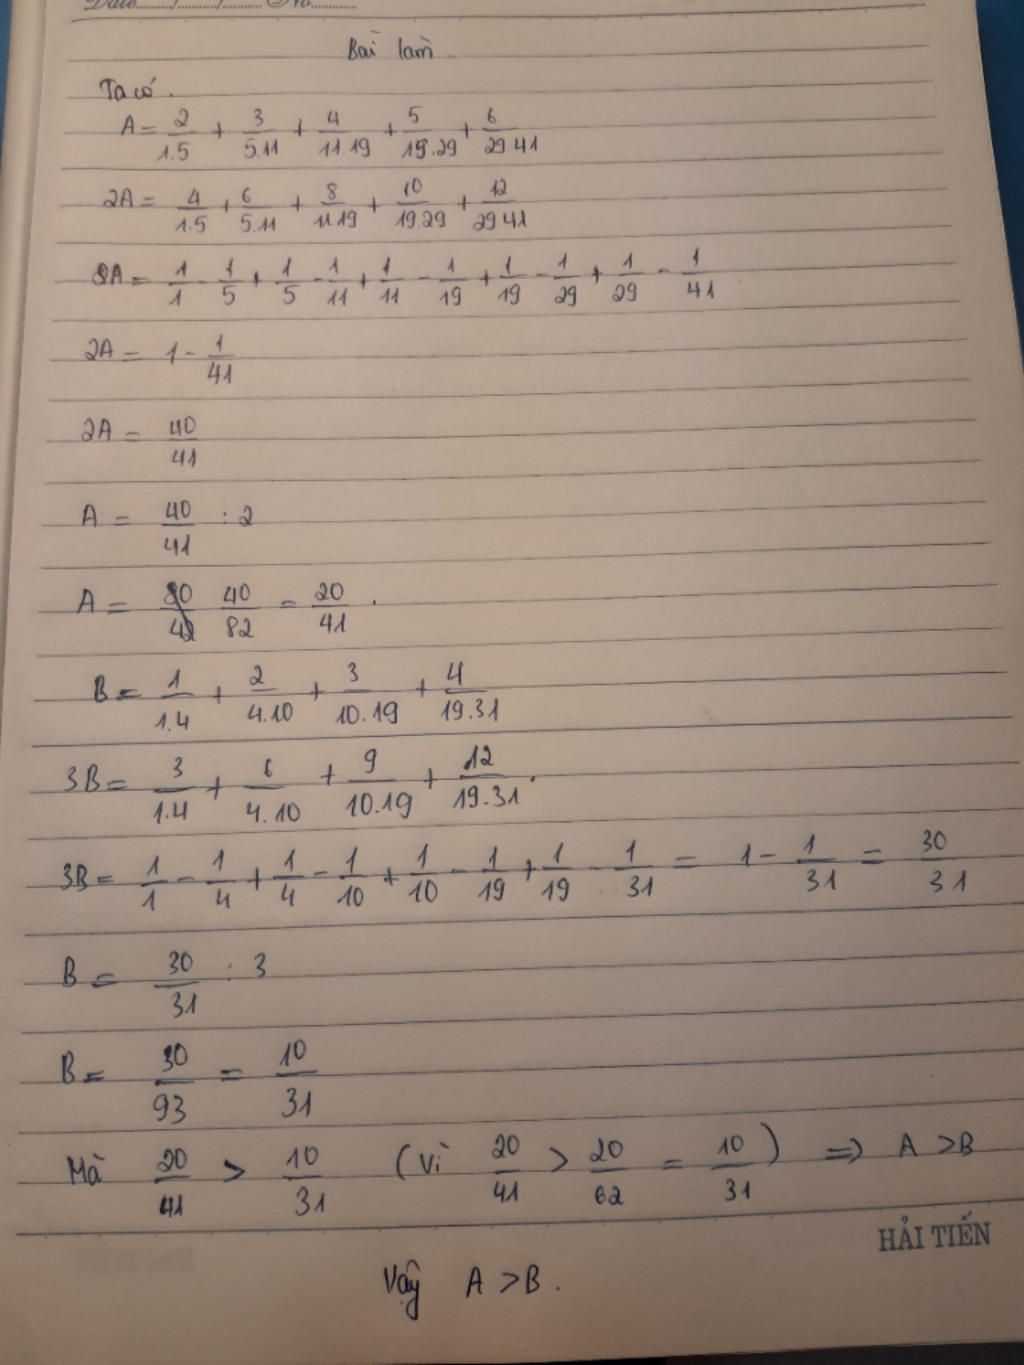 Date......./......./....... No...........
Bài làm
Ta có.
A = 2/1.5 + 3/5.11 + 4/11.19 + 5/19.29 + 6/29.41
2A = 4/1.5 + 6/5.11 + 8/11.19 + 10/19.29 + 12/29.41
2A = 1/1 - 1/5 + 1/5 - 1/11 + 1/11 - 1/19 + 1/19 - 1/29 + 1/29 - 1/41
2A = 1 - 1/41
2A = 40/41
A = 40/41 : 2
A = 40/82 = 20/41 .
B = 1/1.4 + 2/4.10 + 3/10.19 + 4/19.31
3B = 3/1.4 + 6/4.10 + 9/10.19 + 12/19.31 .
3B = 1/1 - 1/4 + 1/4 - 1/10 + 1/10 - 1/19 + 1/19 - 1/31 = 1 - 1/31 = 30/31
B = 30/31 : 3
B = 30/93 = 10/31
Mà 20/41 > 10/31 (vì 20/41 > 20/62 = 10/31) => A > B
HẢI TIẾN
Vậy A > B .